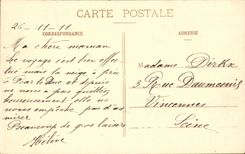 CARTE POSTALE
CORRESPONDANCE
ADRESSE
26-11-11
Ma chère maman
Le voyage s'est bien effec
tué mais la neige a pris
à Bar le Duc et depuis
ne nous a pas quittés
heureusement elle ne
nous empêche pas d'ad
mirer
Beaucoup de gros baisers
Hélène
Madame
3 Rue Daumesnil
Vincennes
Seine